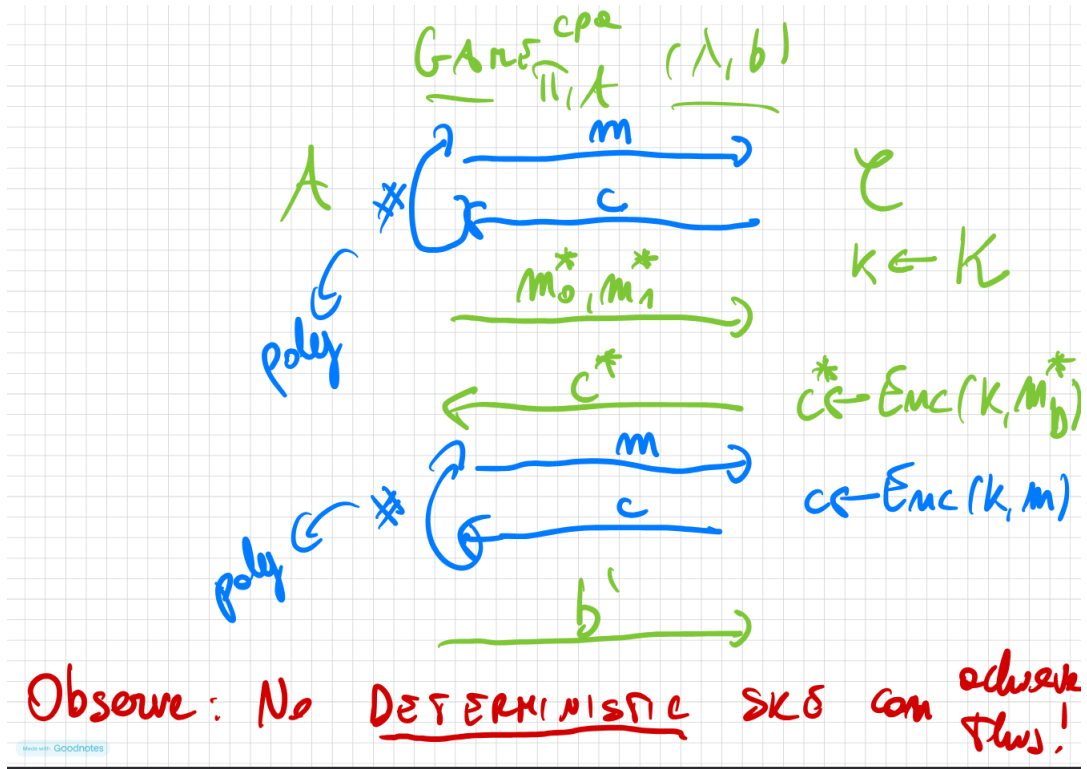 GAME^cpa_Π,A (λ, b)
m
A # C
c
k ← K
m₀*, m₁*
poly
c* c* ← Enc(k, m_b*)
m
# c ← Enc(k, m)
c
poly
b'
Observe: No DETERMINISTIC SKE can achieve this!
Made with Goodnotes